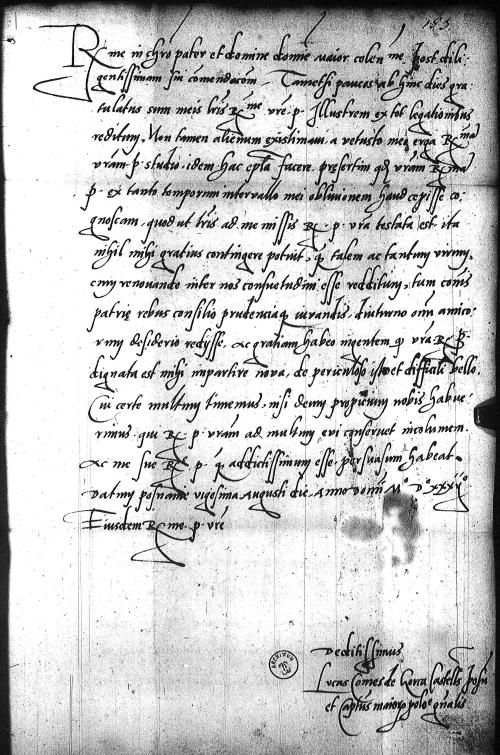 183
R me in chro pater et domine domine maior colen me post dili
gentissimam sui comendacom. Tametsi paucos ab hinc dies gra
tulatus sum meis lris R me vre p. Illustrem ex tot legationibus
reditum, Non tamen alienum existimavi a vetusto meo erga R ma
vram p. studio, idem hac epla facere, presertim qd vram R ma
p. ex tanto temporum intervallo mei oblivionem haud cepisse co
gnoscam, quod ut lris ad me missis R. p. vra testata est, ita
nihil mihi gratius contingere potuit, q talem ac tantum virum,
cum renovando inter nos consuetudinem esse redditum, tum cois
patrie rebus consilio prudenciaq iuvandis, diuturno om amico
rum desiderio redysse, Ac gratiam habeo ingentem q vra R p.
dignata est mihi impartire nova, de periculoso isto et difficili bello.
Cui certe multum timemus, nisi deum propicium nobis habue
rimus, qui R p. vram ad multum evi conservet incolumem.
Ac me sue R. p. q addictissimum esse, persuasum habeat.
Datum posnanie vigesima Augusti die, Anno domi M° D° XXXII°
Eiusdem R me p. vre
Deditissimus
Lucas Comes de Gorca Castells posn
et Captus maioris polo gnalis
ARCHIWUM